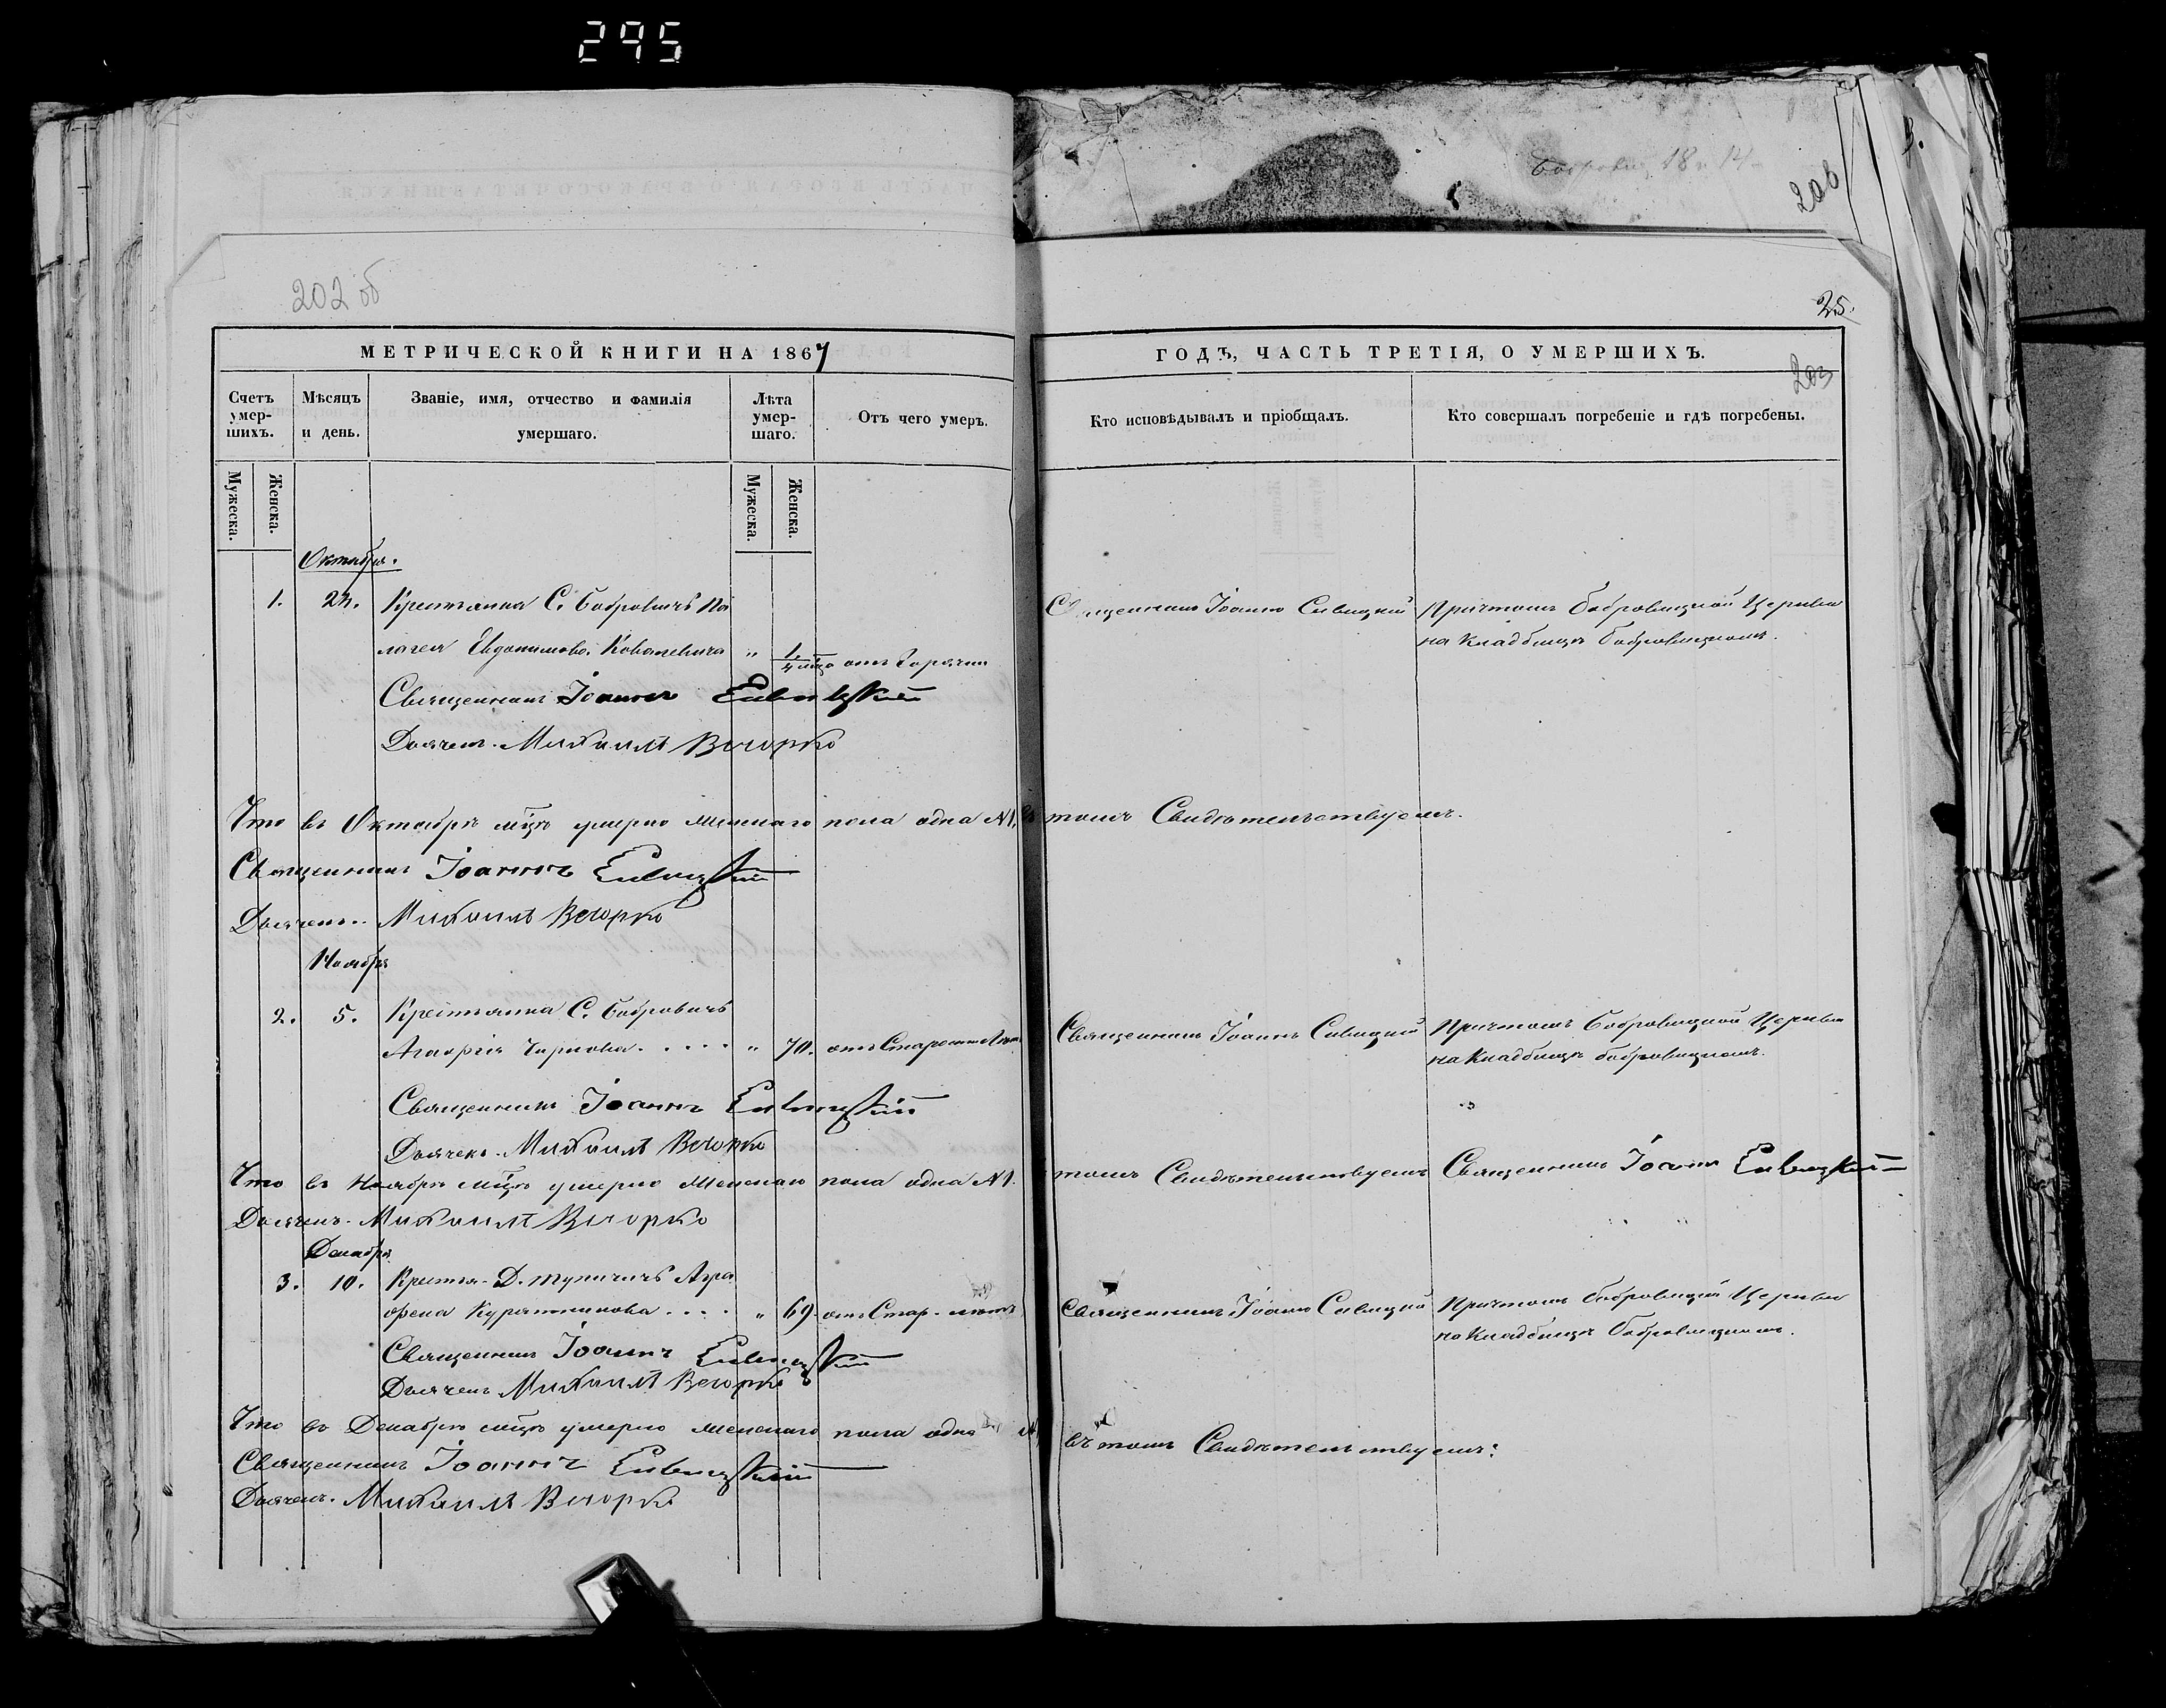 295
Бобровичи
206
202 об
25.
МЕТРИЧЕСКОЙ КНИГИ НА 1867
ГОДЪ, ЧАСТЬ ТРЕТІЯ, О УМЕРШИХЪ.
203
Счетъ умер-шихъ.
Мѣсяцъ и день.
Званіе, имя, отчество и фамилія умершаго.
Лѣта умер-шаго.
Отъ чего умеръ.
Кто исповѣдывалъ и пріобщалъ.
Кто совершалъ погребеніе и гдѣ погребены.
Мужеска.
Женска.
Мужеска.
Женска.
Октября.
1. Крестянка С. Бобровичъ Пе
Священникъ Іоаннъ Сивицкий
Причтомъ Бобровицкой Церкви
лагея Евдокимова Ковалевича „ от Горячки
на Кладбищѣ Бобровицкомъ.
Священникъ Іоаннъ Сивицкий
Дьячекъ Михаилъ Вечорко
Что въ Октябрѣ мцѣ умерло женскаго пола одна №1. въ томъ Свидѣтельствуемъ.
Священникъ Іоаннъ Сивицкий
Дьячекъ Михаилъ Вечорко
Ноября
2. 5. Крестьянка С. Бобровичъ
Чиркова „ 70. отъ Старости
Священникъ Іоаннъ Сивицкий
Причтомъ Бобровицкой Церкви
на Кладбищѣ Бобровицкомъ.
Священникъ Іоаннъ Сивицкий
Дьячекъ Михаилъ Вечорко
Что въ Ноябрѣ мцѣ умерло женскаго пола одна №1. томъ Свидѣтельствуемъ Священникъ Іоаннъ Сивицкий
Дьячекъ Михаилъ Вечорко
Декабря
3. 10. Крестья. Д. Тупичичъ Агра
фена „ 69 отъ Стар. лѣтъ
Священникъ Іоаннъ Сивицкий
Причтомъ Бобровицкой Церкви
на Кладбищѣ Бобровицкомъ.
Священникъ Іоаннъ Сивицкий
Дьячекъ Михаилъ Вечорко
Что въ Декабрѣ мцѣ умерло женскаго пола одна въ томъ Свидѣтельствуемъ:
Священникъ Іоаннъ Сивицкий
Дьячекъ Михаилъ Вечорко